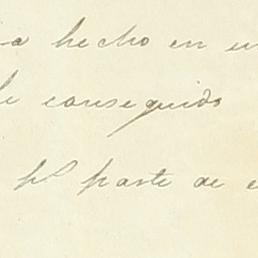 a hecho en
conseguido
parte de